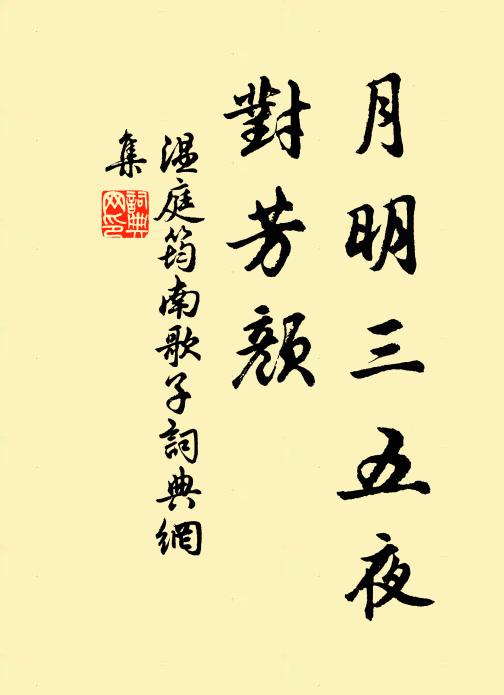 月明三五夜
對芳顏
温庭筠南歌子詞典網
集
詞典网印